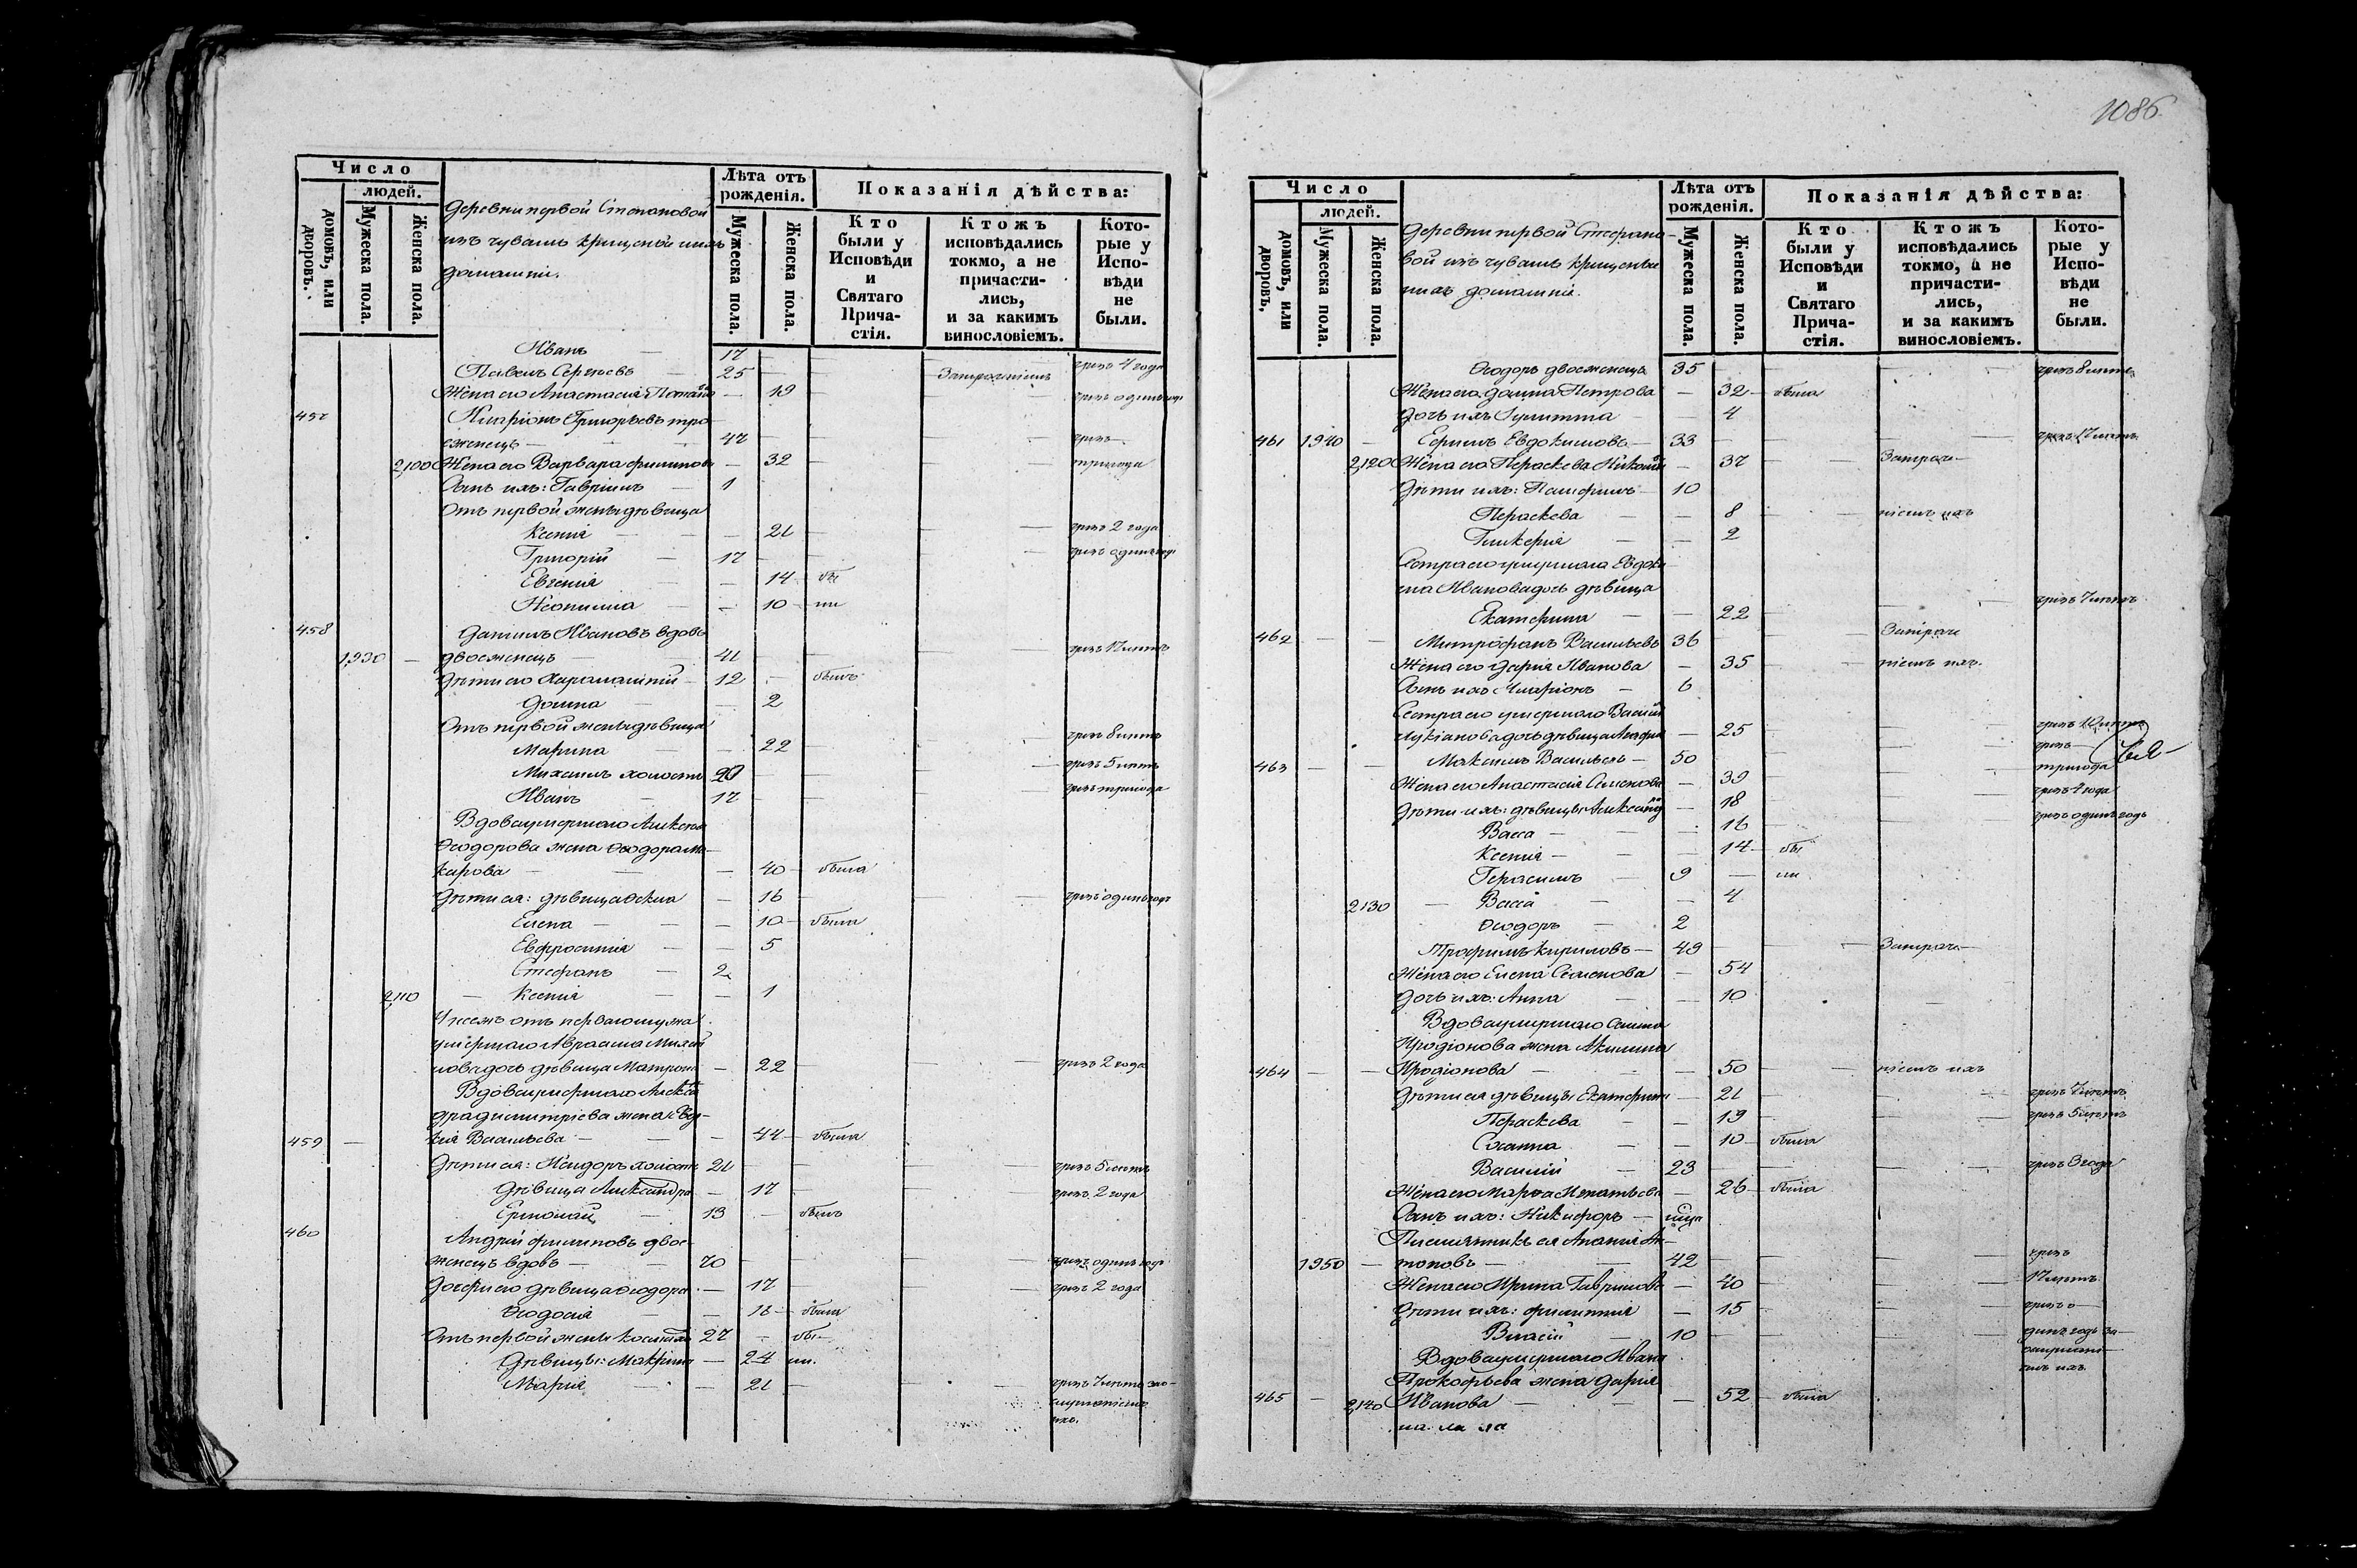 1086.
Число
людей.
домовъ, или дворовъ.
Мужеска пола.
Женска пола.
Деревни первой Степановой
изъ чувашъ крищеные
домашніи.
Лѣта отъ рожденія.
Мужеска пола.
Женска пола.
Показанія дѣйства:
Кто были у Исповѣди и Святаго Прича-стія.
Ктожъ исповѣдались токмо, а не причасти-лись, и за какимъ винословіемъ.
Кото-рые у Испо-вѣди не были.
Иванъ — 17
Павелъ Сергѣевъ 25 — чрезъ 4 года
Жена его Анастасія — 19 — чрезъ одинъ годъ
457 Иларіонъ Григорьевъ тро-
еженецъ — 47 — чрезъ
2,100 Жена его Варвара Филипова — 32 — три года
Сынъ ихъ: Гавріилъ — 1
Отъ первой жены дѣвица
Ксенія — 21 — чрезъ 2 года
Григорій — 17 — чрезъ одинъ годъ
Евгенія — 14 бы
Неонилла — 10 ли
458 Данилъ Ивановъ вдовъ
1,930 — двоеженецъ — 41
Дѣти его Харалампій — 12 — былъ
Домна — 2
Отъ первой жены дѣвица
Марина — 22 — чрезъ 8 лѣтъ
Михаилъ холостъ 20 — чрезъ 5 лѣтъ
Иванъ 17 — чрезъ три года
Вдова умершаго Алексѣя
Ѳеодорова жена Ѳеодора Ма-
карова — 40 — была
Дѣти ея: дѣвица Ѳекла — 16 — чрезъ одинъ годъ
Елена — 10 — была
Евфросинія — 5
Стефанъ — 2
2,110 — Ксенія — 1
У нее жъ отъ перваго мужа
умершаго Авраама Михай
лова дочь дѣвица Матрона — 22 — чрезъ 2 года
Вдова умершаго Алексан
дра Димитріева жена Евдо-
459 — кія Васильева — 44 — была
Дѣти ея: Исидоръ холостъ 21 — чрезъ 5 лѣтъ
Дѣвица Александра — 17 — чрезъ 2 года
Ермолай — 13 — былъ
460 Андрей Филиповъ двое-
женецъ вдовъ — 70 — чрезъ одинъ годъ
Дочери его дѣвица Ѳеодора — 17 — чрезъ 2 года
Ѳеодосія — 16 — была
Отъ первой жены 27 — бы-
Дѣвицы: Макрина — 24 ли.
Марія — 21 — чрезъ 7 лѣтъ
ихъ.
Число
людей.
домовъ, или дворовъ.
Мужеска пола.
Женска пола.
Деревни первой Стефано-
вой изъ чувашъ крищеные
домашніи.
Лѣта отъ рожденія.
Мужеска пола.
Женска пола.
Показанія дѣйства:
Кто были у Исповѣди и Святаго Прича-стія.
Ктожъ исповѣдались токмо, а не причасти-лись, и за какимъ винословіемъ.
Кото-рые у Испо-вѣди не были.
Ѳеодоръ двоеженецъ 35 — чрезъ 8 лѣтъ
Жена его Домна Петрова — 32 — была
Дочь ихъ Іулитта — 4
461 1940 — Ефимъ Евдокимовъ — 33
2,120 Жена его Параскева — 37
Дѣти ихъ: Памфилъ 10
Параскева — 8 — ніемъ ихъ
Гликерія — 2
Сестра его умершаго Евдоки
ма Иванова дочь дѣвица
Екатерина — 22 — чрезъ 7 лѣтъ
462 — — Митрофанъ Васильевъ 36
Жена его Дарія Иванова — 35 — ніемъ ихъ.
Сынъ ихъ Иларіонъ — 6
Сестра его умершаго Василія
Лукіанова дочь дѣвица Агафія — 25 — чрезъ 10 лѣтъ
463 — — Максимъ Васильевъ — 50 — чрезъ
Жена его Анастасія Семенова — 39 — три года
Дѣти ихъ: дѣвицы Александра — 18 — чрезъ 2 года
Васса — 16 — чрезъ одинъ годъ
Ксенія — 14 — бы
Герасимъ — 9 — ли
2130 — Васса — 4
Ѳеодоръ — 2
Трофимъ Кириловъ — 49
Жена его Елена Семенова — 54
Дочь ихъ: Анна — 10
Вдова умершаго
Иродіонова жена Акилина
464 — — Иродіонова — 50 — ніемъ ихъ
Дѣти ея дѣвицы Екатерина — 21 — чрезъ 7 лѣтъ
Параскева — 19 — чрезъ 5 лѣтъ
Сосанна — 10 — была
Василій — 23 — чрезъ 3 года
Жена его Марѳа Игнатьева — 26 — была
Сынъ ихъ: Никифоръ
Племянникъ ея Ананія Ан-
1950 — тоновъ — 42 — чрезъ
Жена его Ирина Гаврилова — 40
Дѣти ихъ: Филиппія — 15 — чрезъ о-
Власій — 10 — динъ годъ за
Вдова умершаго Ивана
Прокофьева жена Дарія
465 — 2,140 Иванова — 52 — была